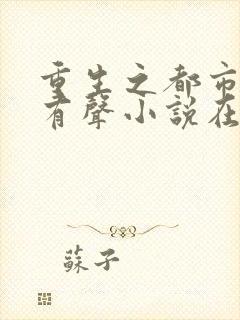 重生之都市
有聲小說在
蘇子